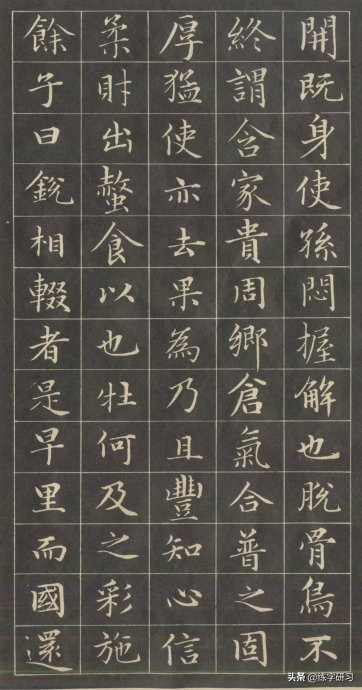 開既身使孫悶握解也脫骨鳥不
終謂含家貴周鄉倉氣合普之固
厚猛使亦去果為乃且豐知心信
柔財出螫食以也牡何及之彩施
餘子曰銳相輟者是早里而國還
头条 @练字研习